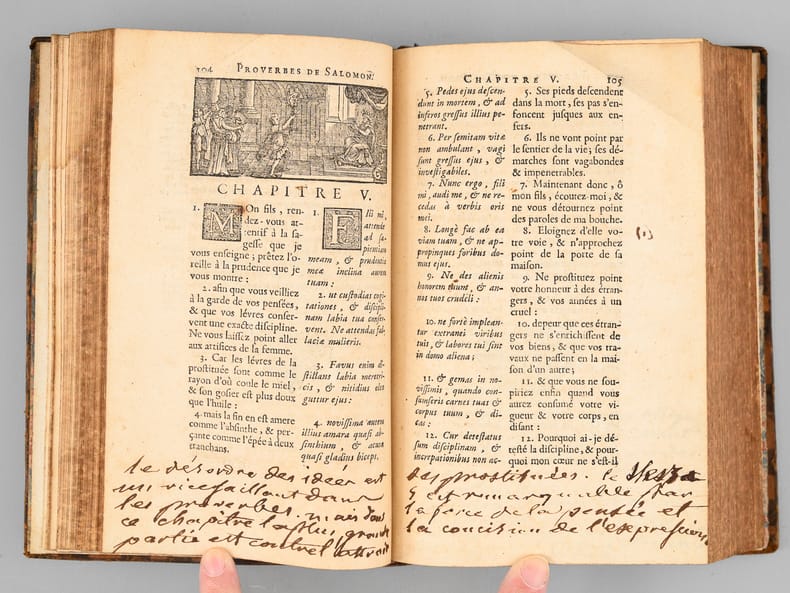 104 PROVERBES DE SALOMON.
6
CHAPITRE V.
1. MOn fils, ren-
dez-vous at-
tentif à la sa-
gesse que je
vous enseigne ; prêtez l'o-
reille à la prudence que je
vous montre :
2. afin que vous veilliez
à la garde de vos pensées,
& que vos lévres conser-
vent une exacte discipline.
Ne vous laissez point aller
aux attifices de la femme.
3. Car les lévres de la
prostituée sont comme le
rayon d'où coule le miel,
& son gosier est plus doux
que l'huile :
4. mais la fin en est amere
comme l'absinthe, & per-
çante comme l'épée à deux
tranchans.
1. FIli mi,
attende
ad sa-
pientiam
meam, & prudentiæ
meæ inclina aurem
tuam :
2. ut custodias cogi-
tationes, & discipli-
nam labia tua conser-
vent. Ne attendas fal-
laciæ mulieris.
3. Favus enim di-
stillans labia meretri-
cis, & nitidius oleo
guttur ejus :
4. novissima autem
illius amara quasi ab-
sinthium, & acuta
quasi gladius biceps.
le désordre des idées est
un vice saillant dans
les proverbes. mais dans
ce chapitre la plus grande
partie est contre l'attrait
CHAPITRE V. 105
5. Pedes ejus descen-
dunt in mortem, & ad
inferos gressus illius pe-
netrant.
6. Per semitam vitæ
non ambulant, vagi
sunt gressus ejus, &
investigabiles.
7. Nunc ergo, fili
mi, audi me, & ne re-
cedas à verbis oris
mei.
8. Longè fac ab ea
viam tuam, & ne ap-
propinques foribus do-
mus ejus.
9. Ne des alienis
honorem tuum, & an-
nos tuos crudéli :
10. ne fortè implean-
tur extranei viribus
tuis, & labores tui sint
in domo aliena ;
11. & gemas in no-
vissimis, quando con-
sumseris carnes tuas &
corpus tuum, & di-
cas :
12. Cur detestatus
sum disciplinam, &
increpationibus non ac-
5. Ses pieds descendent
dans la mort, ses pas s'en-
foncent jusques aux en-
fers.
6. Ils ne vont point par
le sentier de la vie ; ses dé-
marches sont vagabondes
& impenetrables.
7. Maintenant donc, ô
mon fils, écoutez-moi, &
ne vous détournez point
des paroles de ma bouche.
8. Eloignez d'elle vo-
tre voie, & n'approchez
point de la porte de sa
maison.
9. Ne prostituez point
votre honneur à des étran-
gers, & vos années à un
cruel :
10. de peur que ces étran-
gers ne s'enrichissent de
vos biens, & que vos tra-
vaux ne passent en la mai-
son d'un autre ;
11. & que vous ne sou-
piriez enfin quand vous
aurez consumé votre vi-
gueur & votre corps, en
disant :
12. Pourquoi ai-je dé-
testé la discipline, & pour-
quoi mon cœur ne s'est-il
(1)
des prostituées. le
est remarquable par
la force de la pensée et
la concision de l'expression